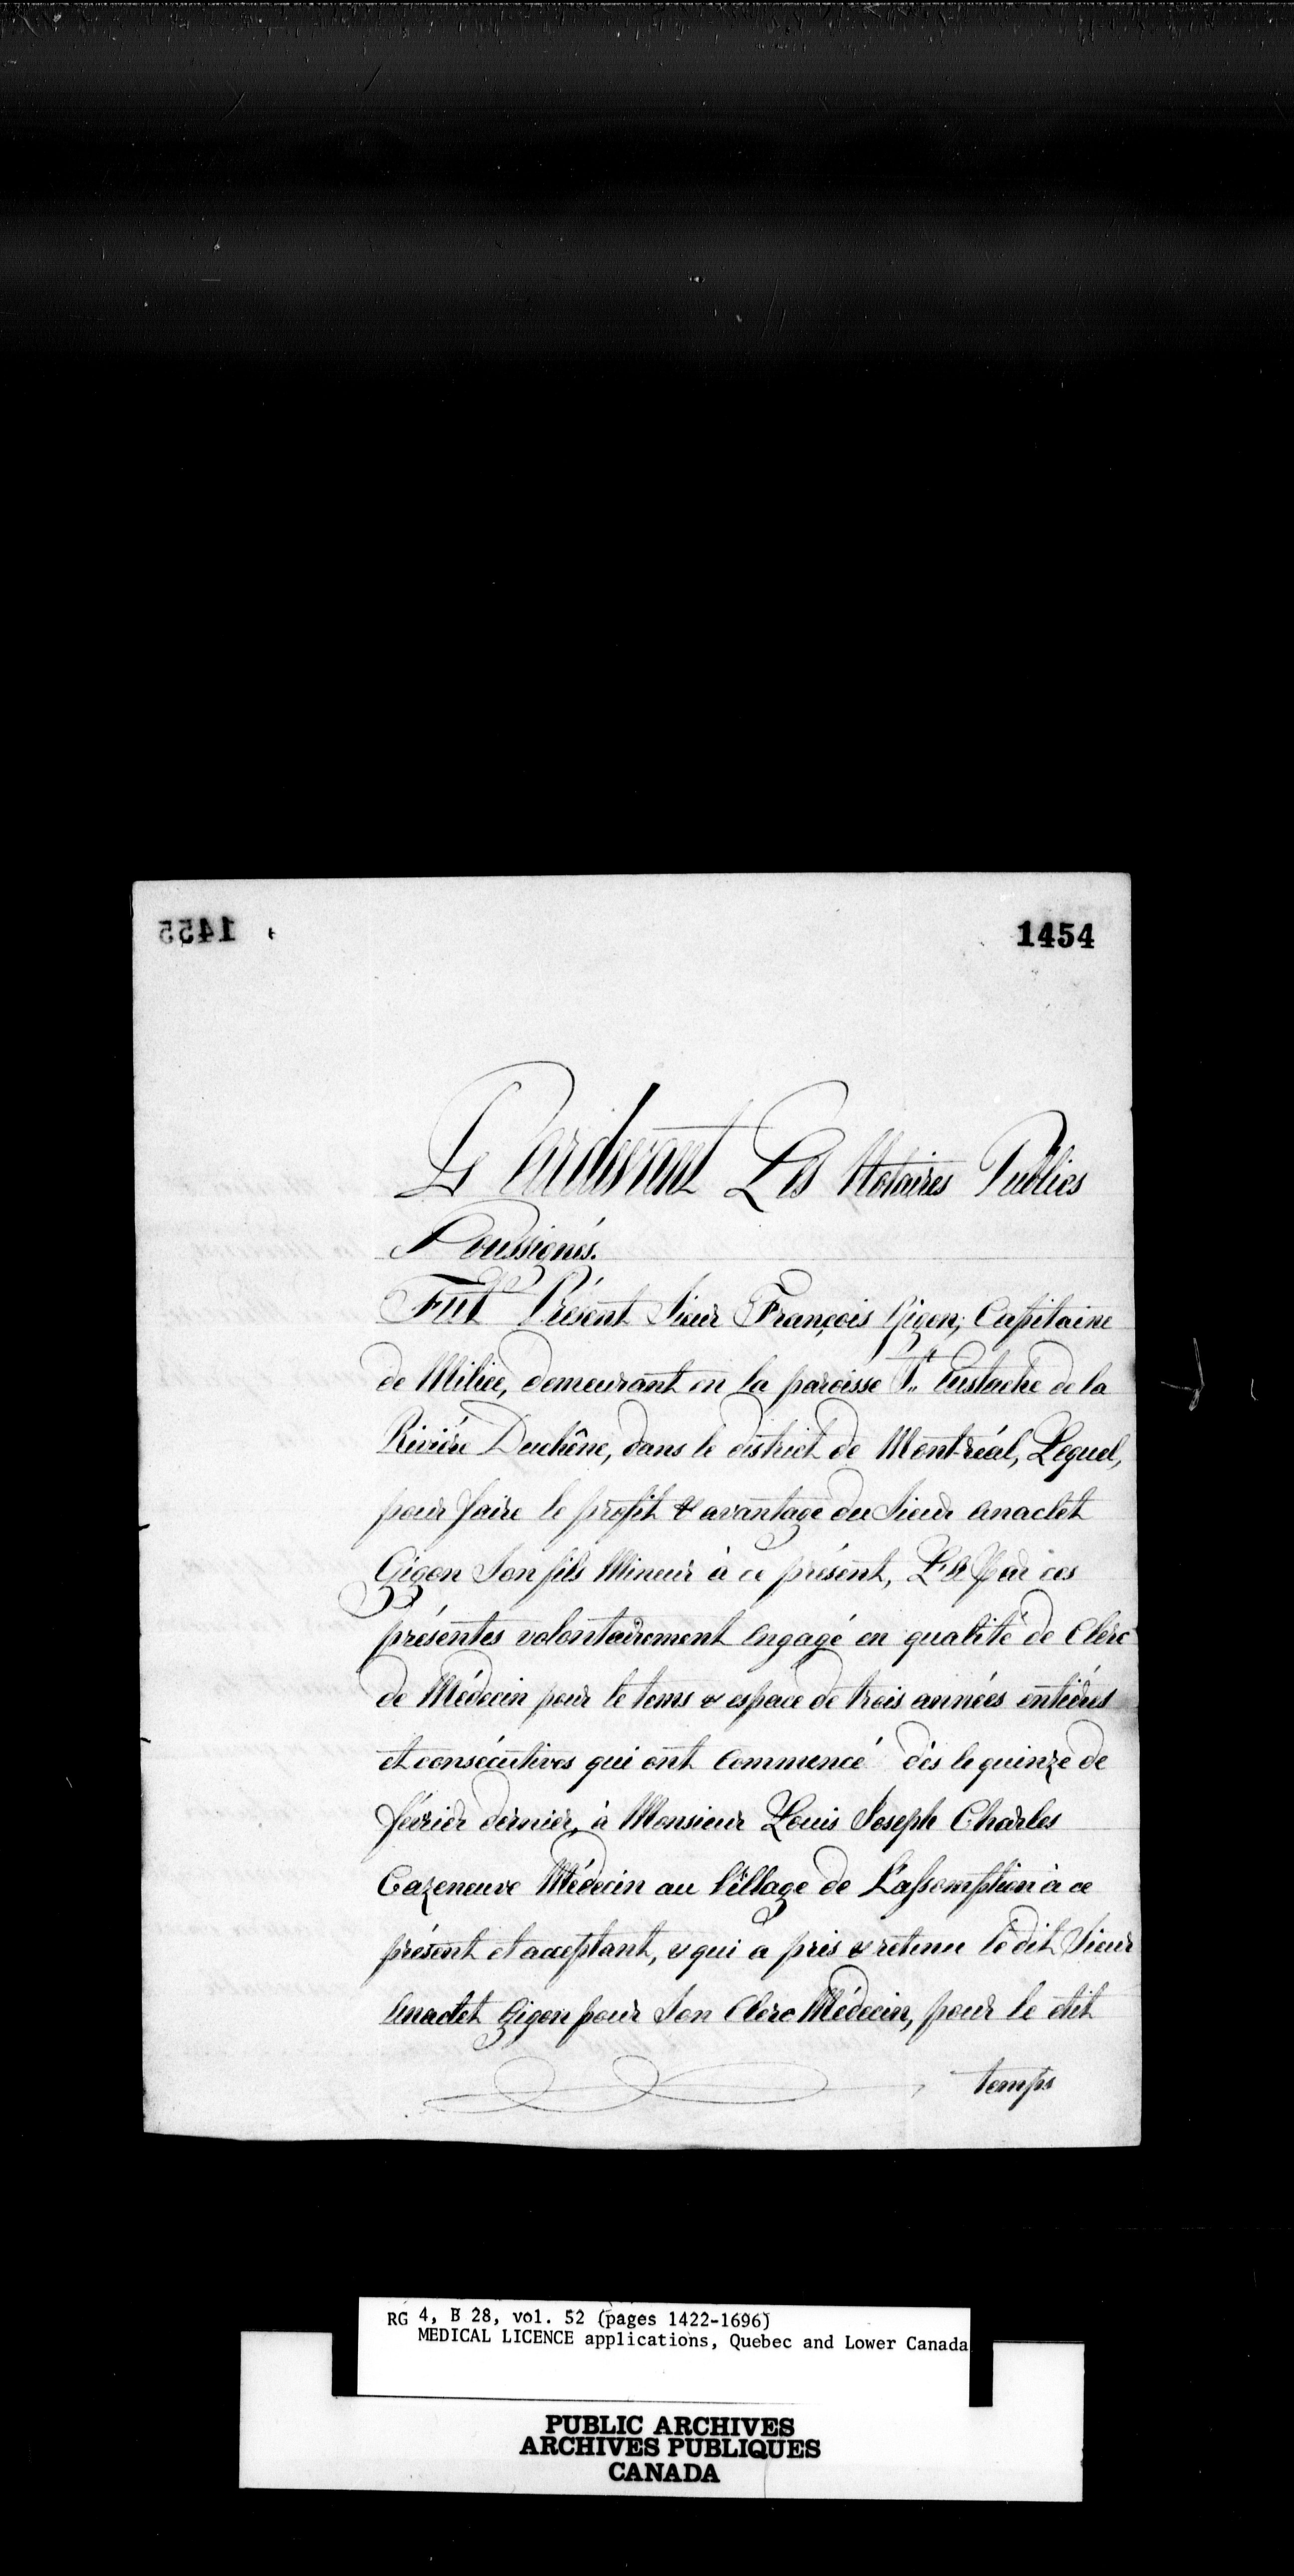 1455
1454
Pardevant Les Notaires Publics
Soussignés.
Fut Présent Sieur François Gigon, Capitaine
de Milice, demeurant en la paroisse St. Eustache de la
Rivière Duchêne, dans le district de Montréal, Lequel,
pour faire le profit & avantage du Sieur Anaclet
Gigon Son fils Mineur à ce présent, L'a Par ces
présentes volontairement Engagé en qualité de Clerc
de Médecin pour le tems & espace de trois années entières
et consécutives qui ont Commencé dès le quinze de
février dernier, à Monsieur Louis Joseph Charles
Cazeneuve Médecin au Village de L'assomption à ce
présent et acceptant, & qui a pris & retenu le dit Sieur
Anaclet Gigon pour Son Clerc Médecin, pour le dit
temps
RG 4, B 28, vol. 52 (pages 1422-1696)
MEDICAL LICENCE applications, Quebec and Lower Canada
PUBLIC ARCHIVES
ARCHIVES PUBLIQUES
CANADA